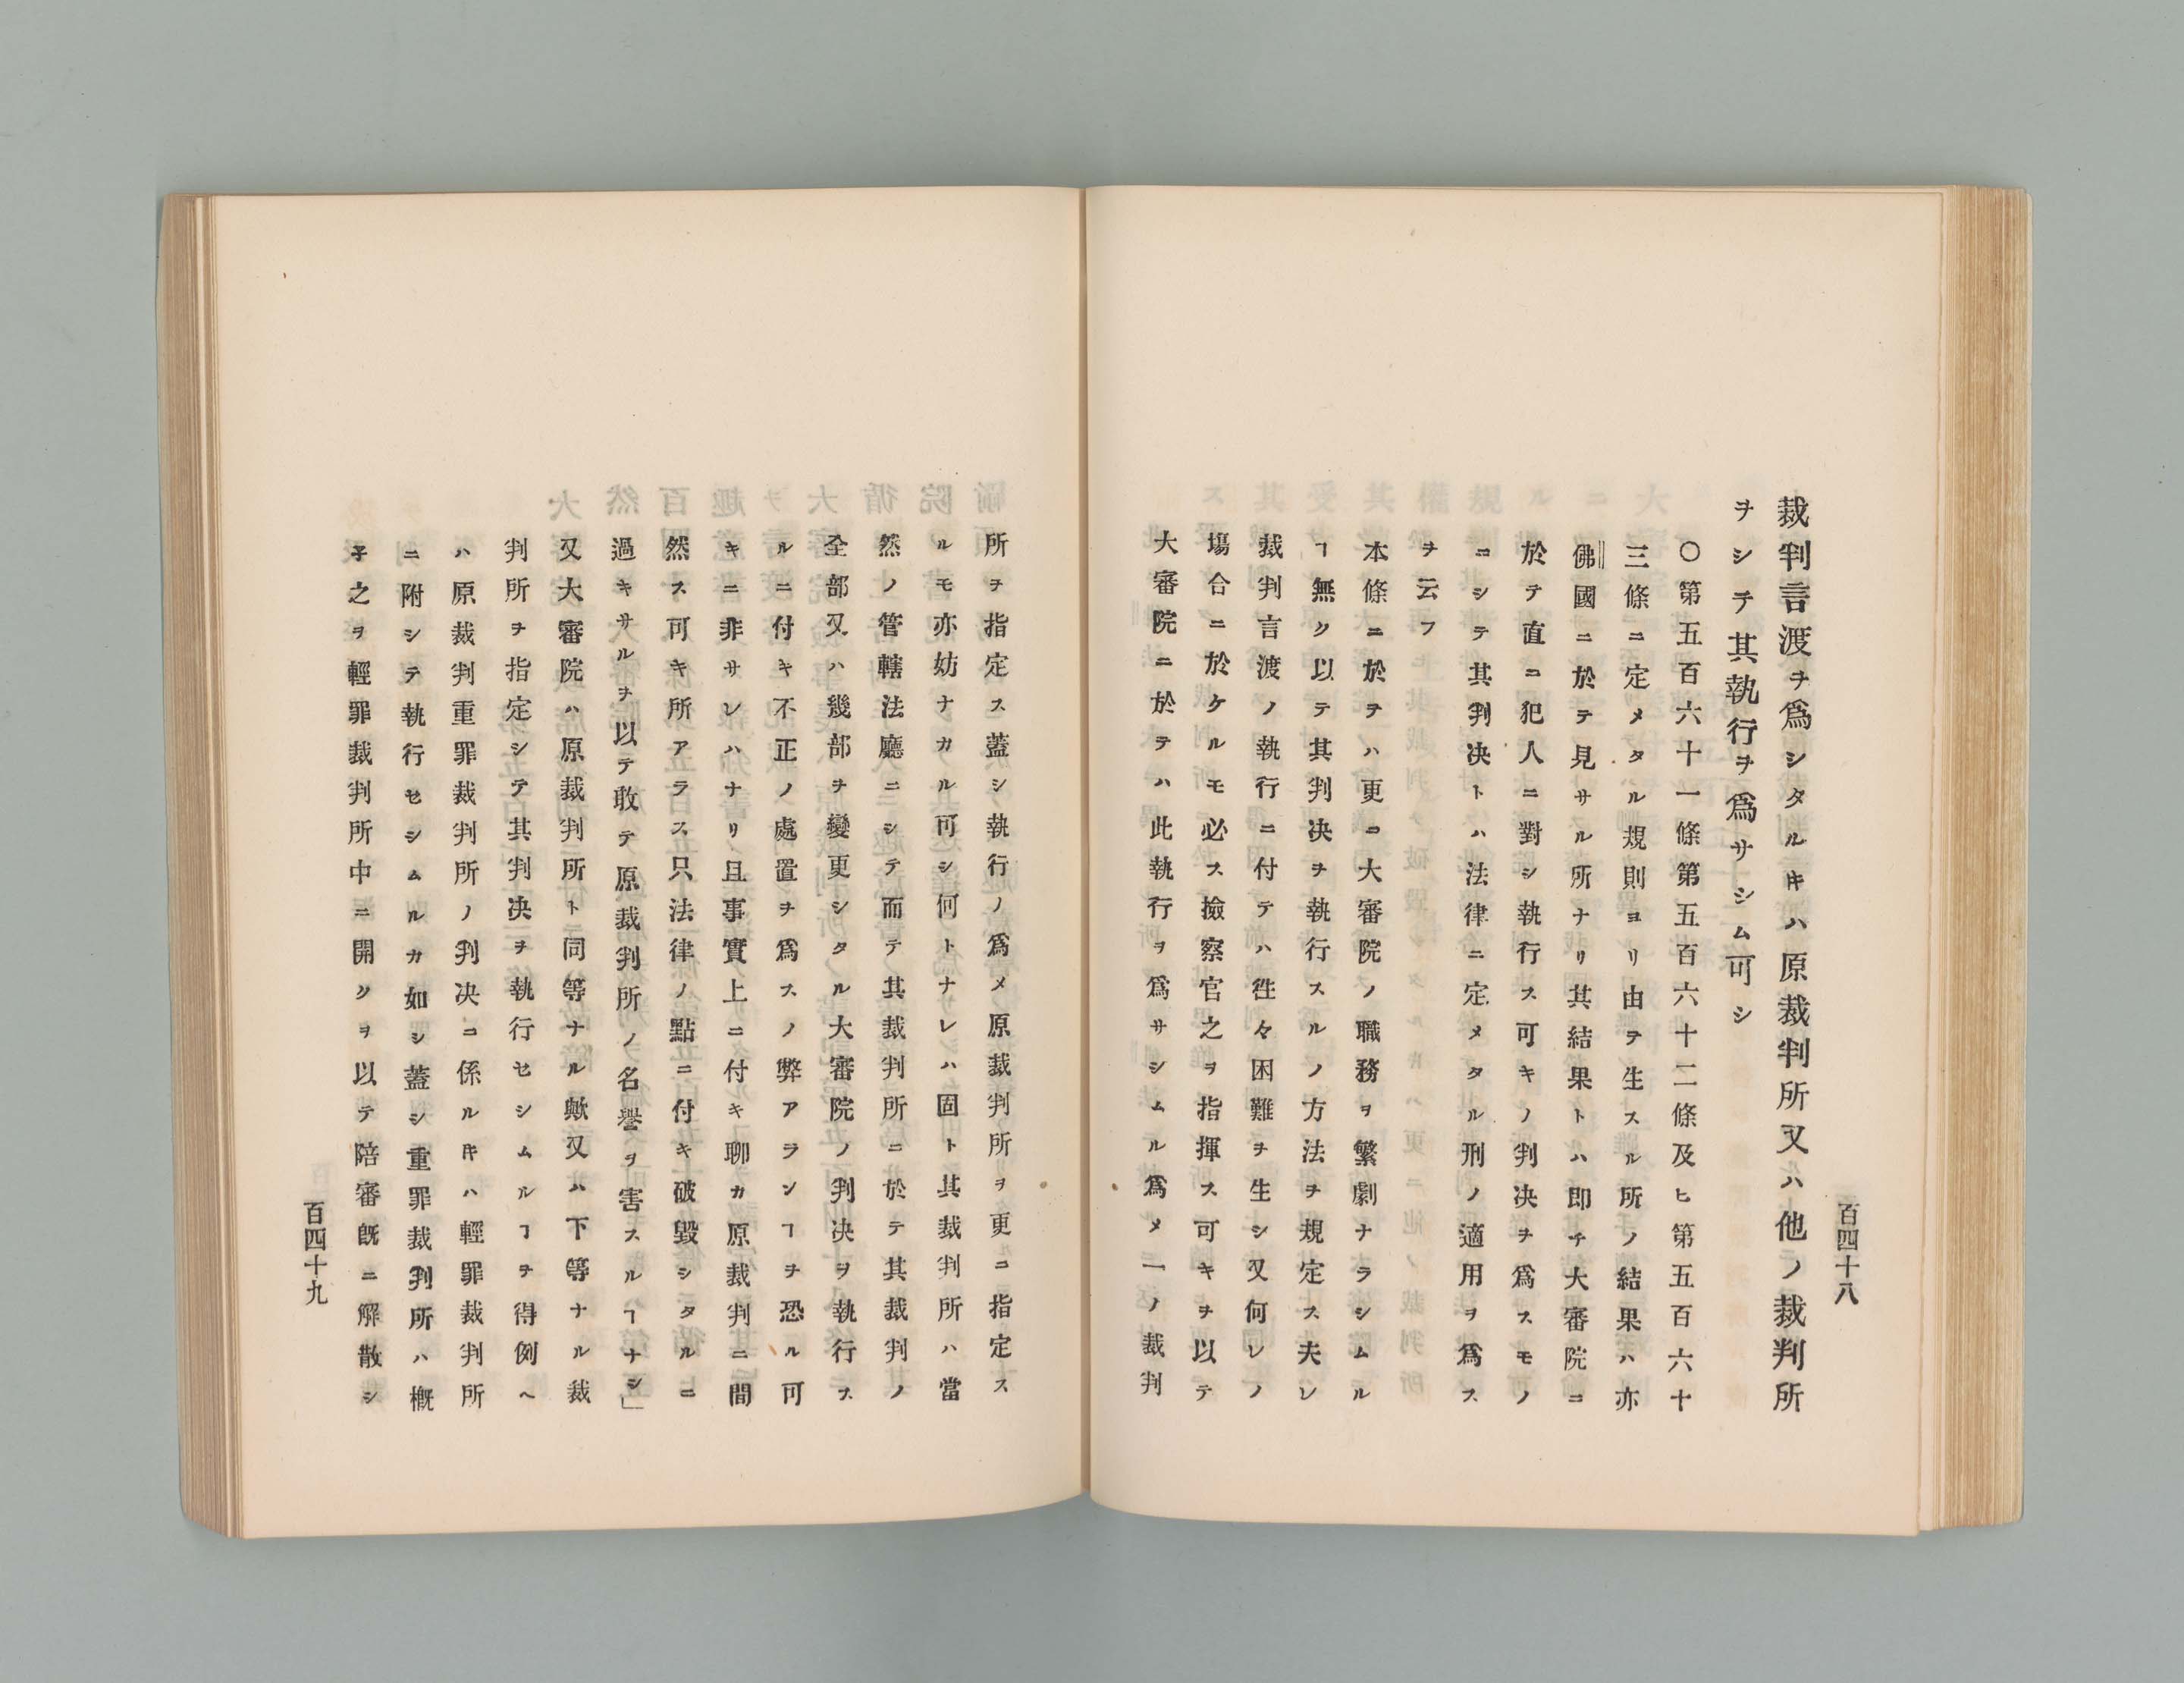 百四十八
裁判言渡ヲ爲シタルキハ原裁判所又ハ他ノ裁判所
ヲシテ其執行ヲ爲サシム可シ
〇第五百六十一條第五百六十二條及ヒ第五百六十
三條ニ定メタル規則ヨリ由テ生スル所ノ結果ハ亦
佛國ニ於テ見サル所ナリ其結果トハ即チ大審院ニ
於テ直ニ犯人ニ對シ執行ス可キノ判决ヲ爲スモノ
ニシテ其判决トハ法律ニ定メタル刑ノ適用ヲ爲ス
ヲ云フ
本條ニ於テハ更ニ大審院ノ職務ヲ繁劇ナラシムル
ヿ無ク以テ其判决ヲ執行スルノ方法ヲ規定ス夫レ
裁判言渡ノ執行ニ付テハ徃々困難ヲ生シ又何レノ
塲合ニ於ケルモ必ス撿察官之ヲ指揮ス可キヲ以テ
大審院ニ於テハ此執行ヲ爲サシムル爲メ一ノ裁判
所ヲ指定ス蓋シ執行ノ爲メ原裁判所ヲ更ニ指定ス
ルモ亦妨ナカル可シ何トナレハ固ト其裁判所ハ當
然ノ管轄法廳ニシテ而テ其裁判所ニ於テ其裁判ノ
全部又ハ幾部ヲ變更シタル大審院ノ判决ヲ執行ス
ルニ付キ不正ノ處置ヲ爲スノ弊アランヿヲ恐ル可
キニ非サレハナリ且事實上ニ付キ聊カ原裁判ニ間
然ス可キ所アラス只法律ノ點ニ付キ破毀シタルニ
過キサルヲ以テ敢テ原裁判所ノ名譽ヲ害スルヿナシ」
又大審院ハ原裁判所ト同等ナル歟又ハ下等ナル裁
判所ヲ指定シテ其判决ヲ執行セシムルヿヲ得例ヘ
ハ原裁判重罪裁判所ノ判决ニ係ルキハ輕罪裁判所
ニ附シテ執行セシムルカ如シ蓋シ重罪裁判所ハ概
子之ヲ輕罪裁判所中ニ開クヲ以テ陪審既ニ解散シ
百四十九